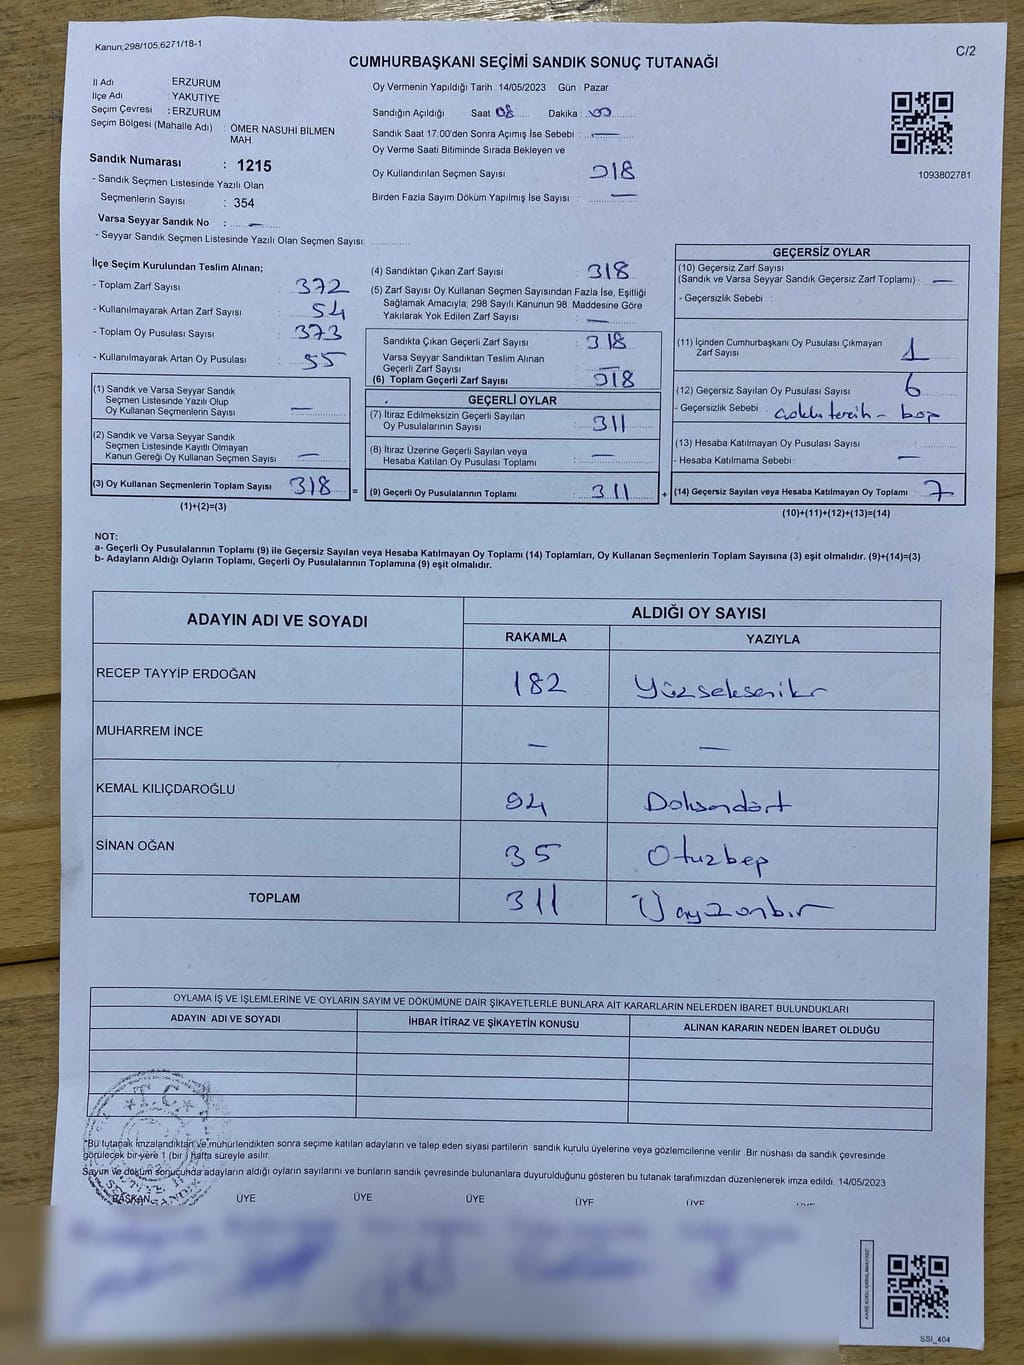 Kanun;298/105,6271/18-1
C/2
CUMHURBAŞKANI SEÇİMİ SANDIK SONUÇ TUTANAĞI
İl Adı : ERZURUM
İlçe Adı : YAKUTİYE
Seçim Çevresi : ERZURUM
Seçim Bölgesi (Mahalle Adı) : ÖMER NASUHİ BİLMEN
MAH.
Sandık Numarası : 1215
- Sandık Seçmen Listesinde Yazılı Olan
Seçmenlerin Sayısı : 354
Varsa Seyyar Sandık No : —
- Seyyar Sandık Seçmen Listesinde Yazılı Olan Seçmen Sayısı:
Oy Vermenin Yapıldığı Tarih : 14/05/2023 Gün : Pazar
Sandığın Açıldığı Saat 08 Dakika : 00
Sandık Saat 17.00'den Sonra Açımış İse Sebebi : —
Oy Verme Saati Bitiminde Sırada Bekleyen ve
Oy Kullandırılan Seçmen Sayısı : 318
Birden Fazla Sayım Döküm Yapılmış İse Sayısı : —
1093802781
İlçe Seçim Kurulundan Teslim Alınan;
- Toplam Zarf Sayısı : 372
- Kullanılmayarak Artan Zarf Sayısı : 54
- Toplam Oy Pusulası Sayısı : 373
- Kullanılmayarak Artan Oy Pusulası : 55
(1) Sandık ve Varsa Seyyar Sandık
Seçmen Listesinde Yazılı Olup
Oy Kullanan Seçmenlerin Sayısı : —
(2) Sandık ve Varsa Seyyar Sandık
Seçmen Listesinde Kayıtlı Olmayan
Kanun Gereği Oy Kullanan Seçmen Sayısı : —
(3) Oy Kullanan Seçmenlerin Toplam Sayısı : 318 =
(1)+(2)=(3)
(4) Sandıktan Çıkan Zarf Sayısı : 318
(5) Zarf Sayısı Oy Kullanan Seçmen Sayısından Fazla İse, Eşitliği
Sağlamak Amacıyla, 298 Sayılı Kanunun 98. Maddesine Göre
Yakılarak Yok Edilen Zarf Sayısı : —
Sandıkta Çıkan Geçerli Zarf Sayısı : 318
Varsa Seyyar Sandıktan Teslim Alınan
Geçerli Zarf Sayısı : —
(6) Toplam Geçerli Zarf Sayısı : 318
GEÇERLİ OYLAR
(7) İtiraz Edilmeksizin Geçerli Sayılan
Oy Pusulalarının Sayısı : 311
(8) İtiraz Üzerine Geçerli Sayılan veya
Hesaba Katılan Oy Pusulası Toplamı : —
(9) Geçerli Oy Pusulalarının Toplamı : 311 +
GEÇERSİZ OYLAR
(10) Geçersiz Zarf Sayısı
(Sandık ve Varsa Seyyar Sandık Geçersiz Zarf Toplamı) : —
- Geçersizlik Sebebi :
(11) İçinden Cumhurbaşkanı Oy Pusulası Çıkmayan
Zarf Sayısı : 1
(12) Geçersiz Sayılan Oy Pusulası Sayısı : 6
- Geçersizlik Sebebi : tercih - boş
(13) Hesaba Katılmayan Oy Pusulası Sayısı :
- Hesaba Katılmama Sebebi : —
(14) Geçersiz Sayılan veya Hesaba Katılmayan Oy Toplamı : 7
(10)+(11)+(12)+(13)=(14)
NOT:
a- Geçerli Oy Pusulalarının Toplamı (9) ile Geçersiz Sayılan veya Hesaba Katılmayan Oy Toplamı (14) Toplamları, Oy Kullanan Seçmenlerin Toplam Sayısına (3) eşit olmalıdır. (9)+(14)=(3)
b- Adayların Aldığı Oyların Toplamı, Geçerli Oy Pusulalarının Toplamına (9) eşit olmalıdır.
ADAYIN ADI VE SOYADI
ALDIĞI OY SAYISI
RAKAMLA YAZIYLA
RECEP TAYYİP ERDOĞAN 182 Yüzsekseniki
MUHARREM İNCE — —
KEMAL KILIÇDAROĞLU 94 Doksandört
SİNAN OĞAN 35 Otuzbeş
TOPLAM 311 Üçyüzonbir
OYLAMA İŞ VE İŞLEMLERİNE VE OYLARIN SAYIM VE DÖKÜMÜNE DAİR ŞİKAYETLERLE BUNLARA AİT KARARLARIN NELERDEN İBARET BULUNDUKLARI
ADAYIN ADI VE SOYADI İHBAR İTİRAZ VE ŞİKAYETİN KONUSU ALINAN KARARIN NEDEN İBARET OLDUĞU
*Bu tutanak imzalandıktan ve mühürlendikten sonra seçime katılan adayların ve talep eden siyasi partilerin sandık kurulu üyelerine veya gözlemcilerine verilir .Bir nüshası da sandık çevresinde
görülecek bir yere 1 (bir ) hafta süreyle asılır.
Sayım ve döküm sonucunda adayların aldığı oyların sayılarını ve bunların sandık çevresinde bulunanlara duyurulduğunu gösteren bu tutanak tarafımızdan düzenlenerek imza edildi. 14/05/2023
T.C.
BAŞKAN ÜYE ÜYE ÜYE ÜYE ÜYE ÜYE
SSI_404